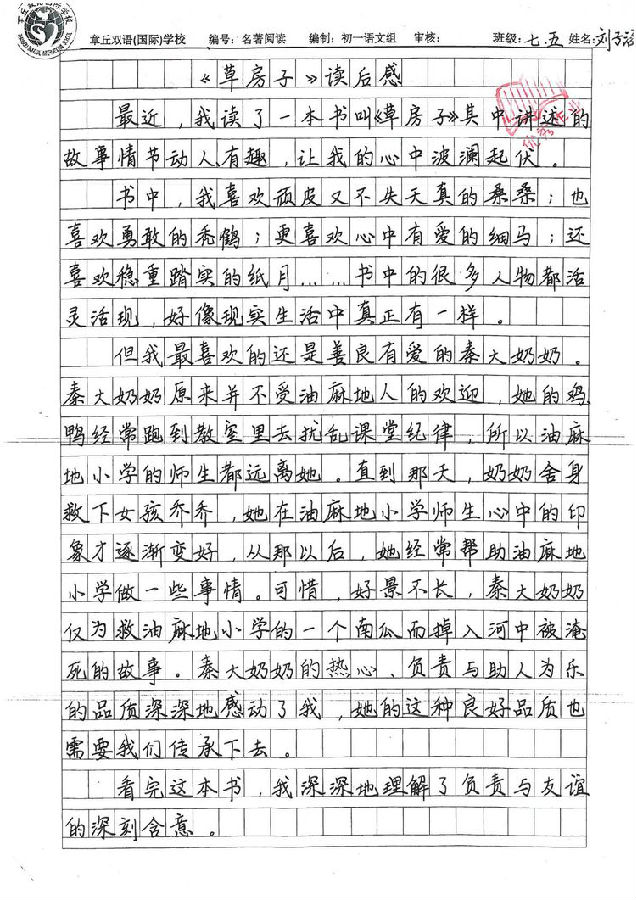 章丘双语(国际)学校 编号：名著阅读 编制：初一语文组 审核： 班级：七.五 姓名：刘子涵
《草房子》读后感
最近，我读了一本书叫《草房子》其中讲述的
故事情节动人有趣，让我的心中波澜起伏。
书中，我喜欢顽皮又不失天真的桑桑；也
喜欢勇敢的秃鹤；更喜欢心中有爱的细马；还
喜欢稳重踏实的纸月……书中的很多人物都活
灵活现，好像现实生活中真正有一样。
但我最喜欢的还是善良有爱的秦大奶奶。
秦大奶奶原来并不受油麻地人的欢迎，她的鸡
鸭经常跑到教室里去扰乱课堂纪律，所以油麻
地小学的师生都远离她。直到那天，奶奶舍身
救下女孩乔乔，她在油麻地小学师生心中的印
象才逐渐变好，从那以后，她经常帮助油麻地
小学做一些事情。可惜，好景不长，秦大奶奶
仅为救油麻地小学的一个南瓜而掉入河中被淹
死的故事。秦大奶奶的热心、负责与助人为乐
的品质深深地感动了我，她的这种良好品质也
需要我们传承下去。
看完这本书，我深深地理解了负责与友谊
的深刻含意。